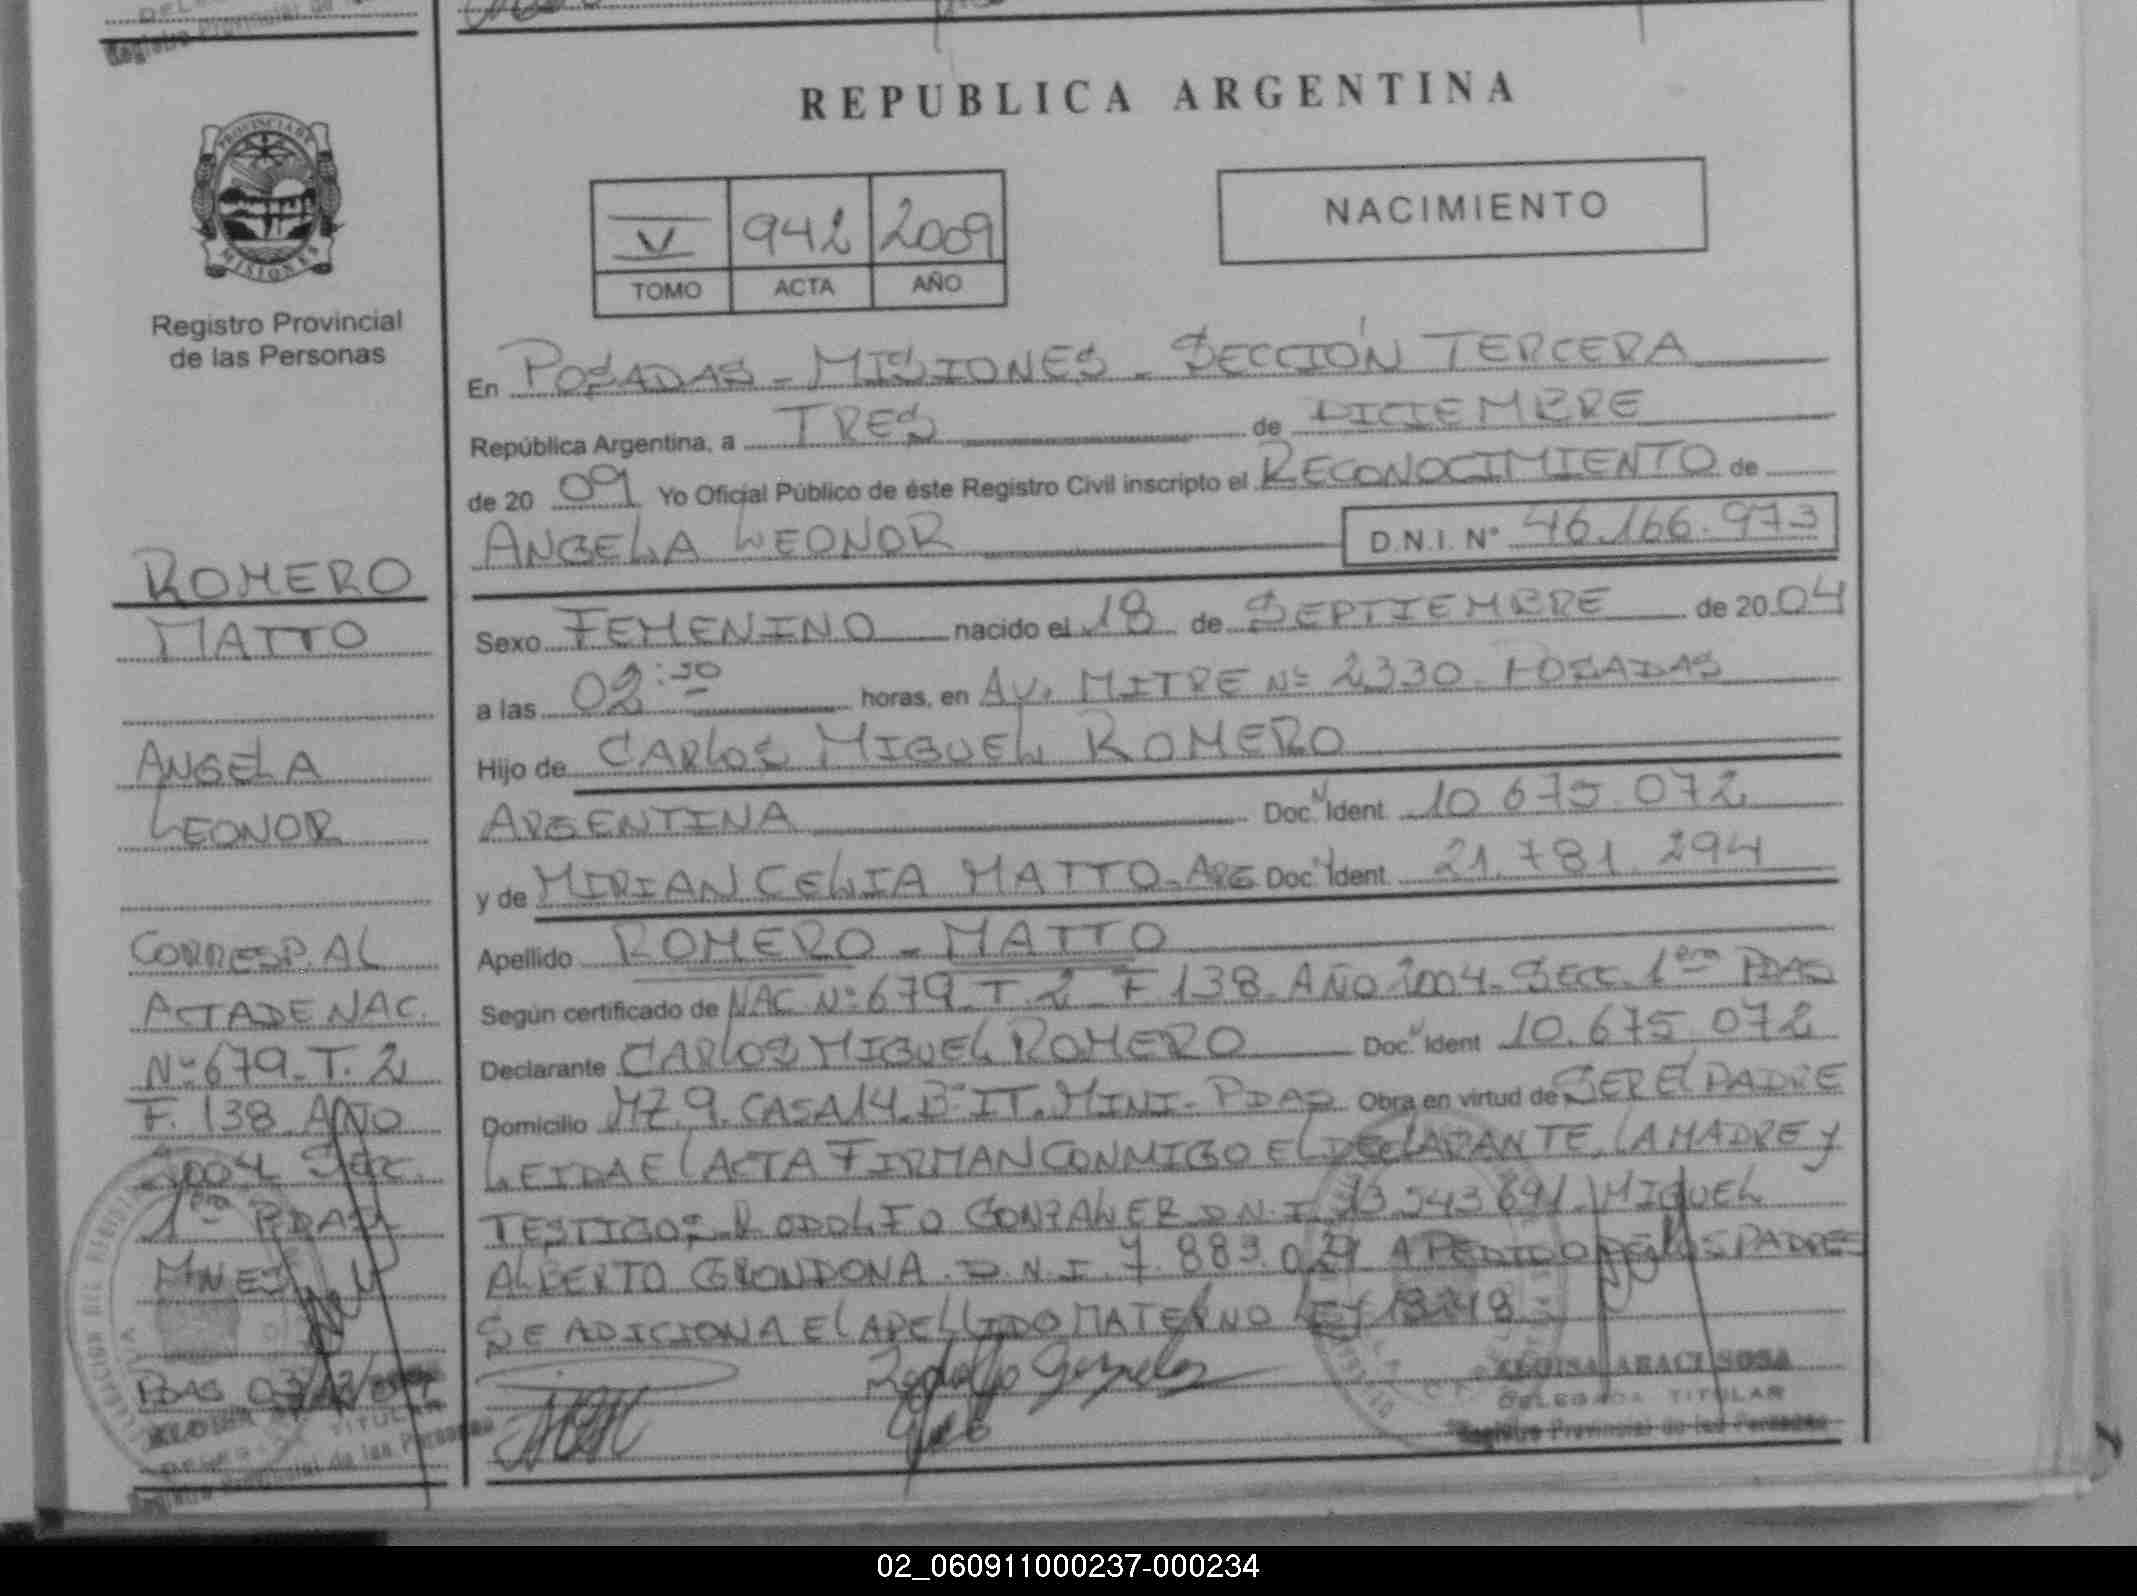 REPUBLICA ARGENTINA
PROVINCIA DE
MISIONES
Registro Provincial
de las Personas
V 942 2009
TOMO ACTA AÑO
NACIMIENTO
En POSADAS - MISIONES - SECCIÓN TERCERA
República Argentina, a TRES de DICIEMBRE
de 20 09 Yo Oficial Público de éste Registro Civil inscripto el RECONOCIMIENTO de
ANGELA LEONOR D.N.I. Nº 46.166.973
Sexo FEMENINO nacido el 18 de SEPTIEMBRE de 20 04
a las 02: horas, en AV. MITRE Nº 2330 - POSADAS
Hijo de CARLOS MIGUEL ROMERO
ARGENTINA Doc. Ident. 10.675.072
y de MIRIAN CELIA MATTO - ARG Doc. Ident. 21.781.294
Apellido ROMERO - MATTO
Según certificado de NAC. Nº 679 - T. 2 - F 138 - AÑO 2004 - SECC. 1era PDAS
Declarante CARLOS MIGUEL ROMERO Doc. Ident 10.675.072
Domicilio MZ 9. CASA 14. Bº IT. MINI - PDAS Obra en virtud de SER EL PADRE
LEIDA EL ACTA FIRMAN CONMIGO EL DECLARANTE, LA MADRE Y
TESTIGOS RODOLFO GONZALEZ D.N.I. 13.543.691. MIGUEL
ALBERTO GRONDONA. D.N.I. 7.883. A PEDIDO DE LOS PADRES
SE ADICIONA EL APELLIDO MATERNO LEY 18248 -
Rodolfo Gonzalez
ARACI SOSA
DELEGADA TITULAR
Registro Provincial de las Personas
ROMERO
MATTO
ANGELA
LEONOR
CORRESP. AL
ACTA DE NAC.
Nº 679 - T. 2
F. 138 AÑO
2004 SECC.
1era PDAS
MNES
PDAS 03/12/
TITULAR
de las Personas
02_060911000237-000234